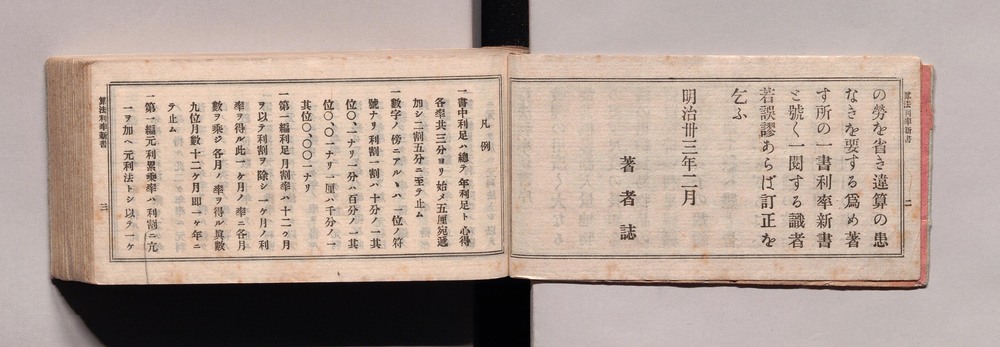 算法利率新書
二
の勞を省き違算の患
なきを要する爲め著
す所の一書利率新書
と號く一閲する識者
若誤謬あらば訂正を
乞ふ
明治卅三年二月
著者誌
凡例
一書中利足ハ總テ年利足ト心得
各率共三分ヨリ始メ五厘宛遞
加シ二割五分ニ至テ止ム
一數字ノ傍ニアルヽハ一位ノ符
號ナリ利割一割ハ十分ノ一其
位〇、一ナリ一分ハ百分ノ一其
位〇、〇一ナリ一厘ハ千分ノ一
其位〇、〇〇一ナリ
一第一編利足月割率ハ十二ヶ月
ヲ以テ利割ヲ除シ一ヶ月ノ利
率ヲ得ル此一ヶ月ノ率ニ各月
數ヲ乘ジ各月ノ率ヲ得ル眞數
九位月數十二ヶ月即一ヶ年ニ
テ止ム
一第一編元利累乘率ハ利割ニ元
一ヲ加ヘ元利法トシ以テ一ヶ
算法利率新書
三